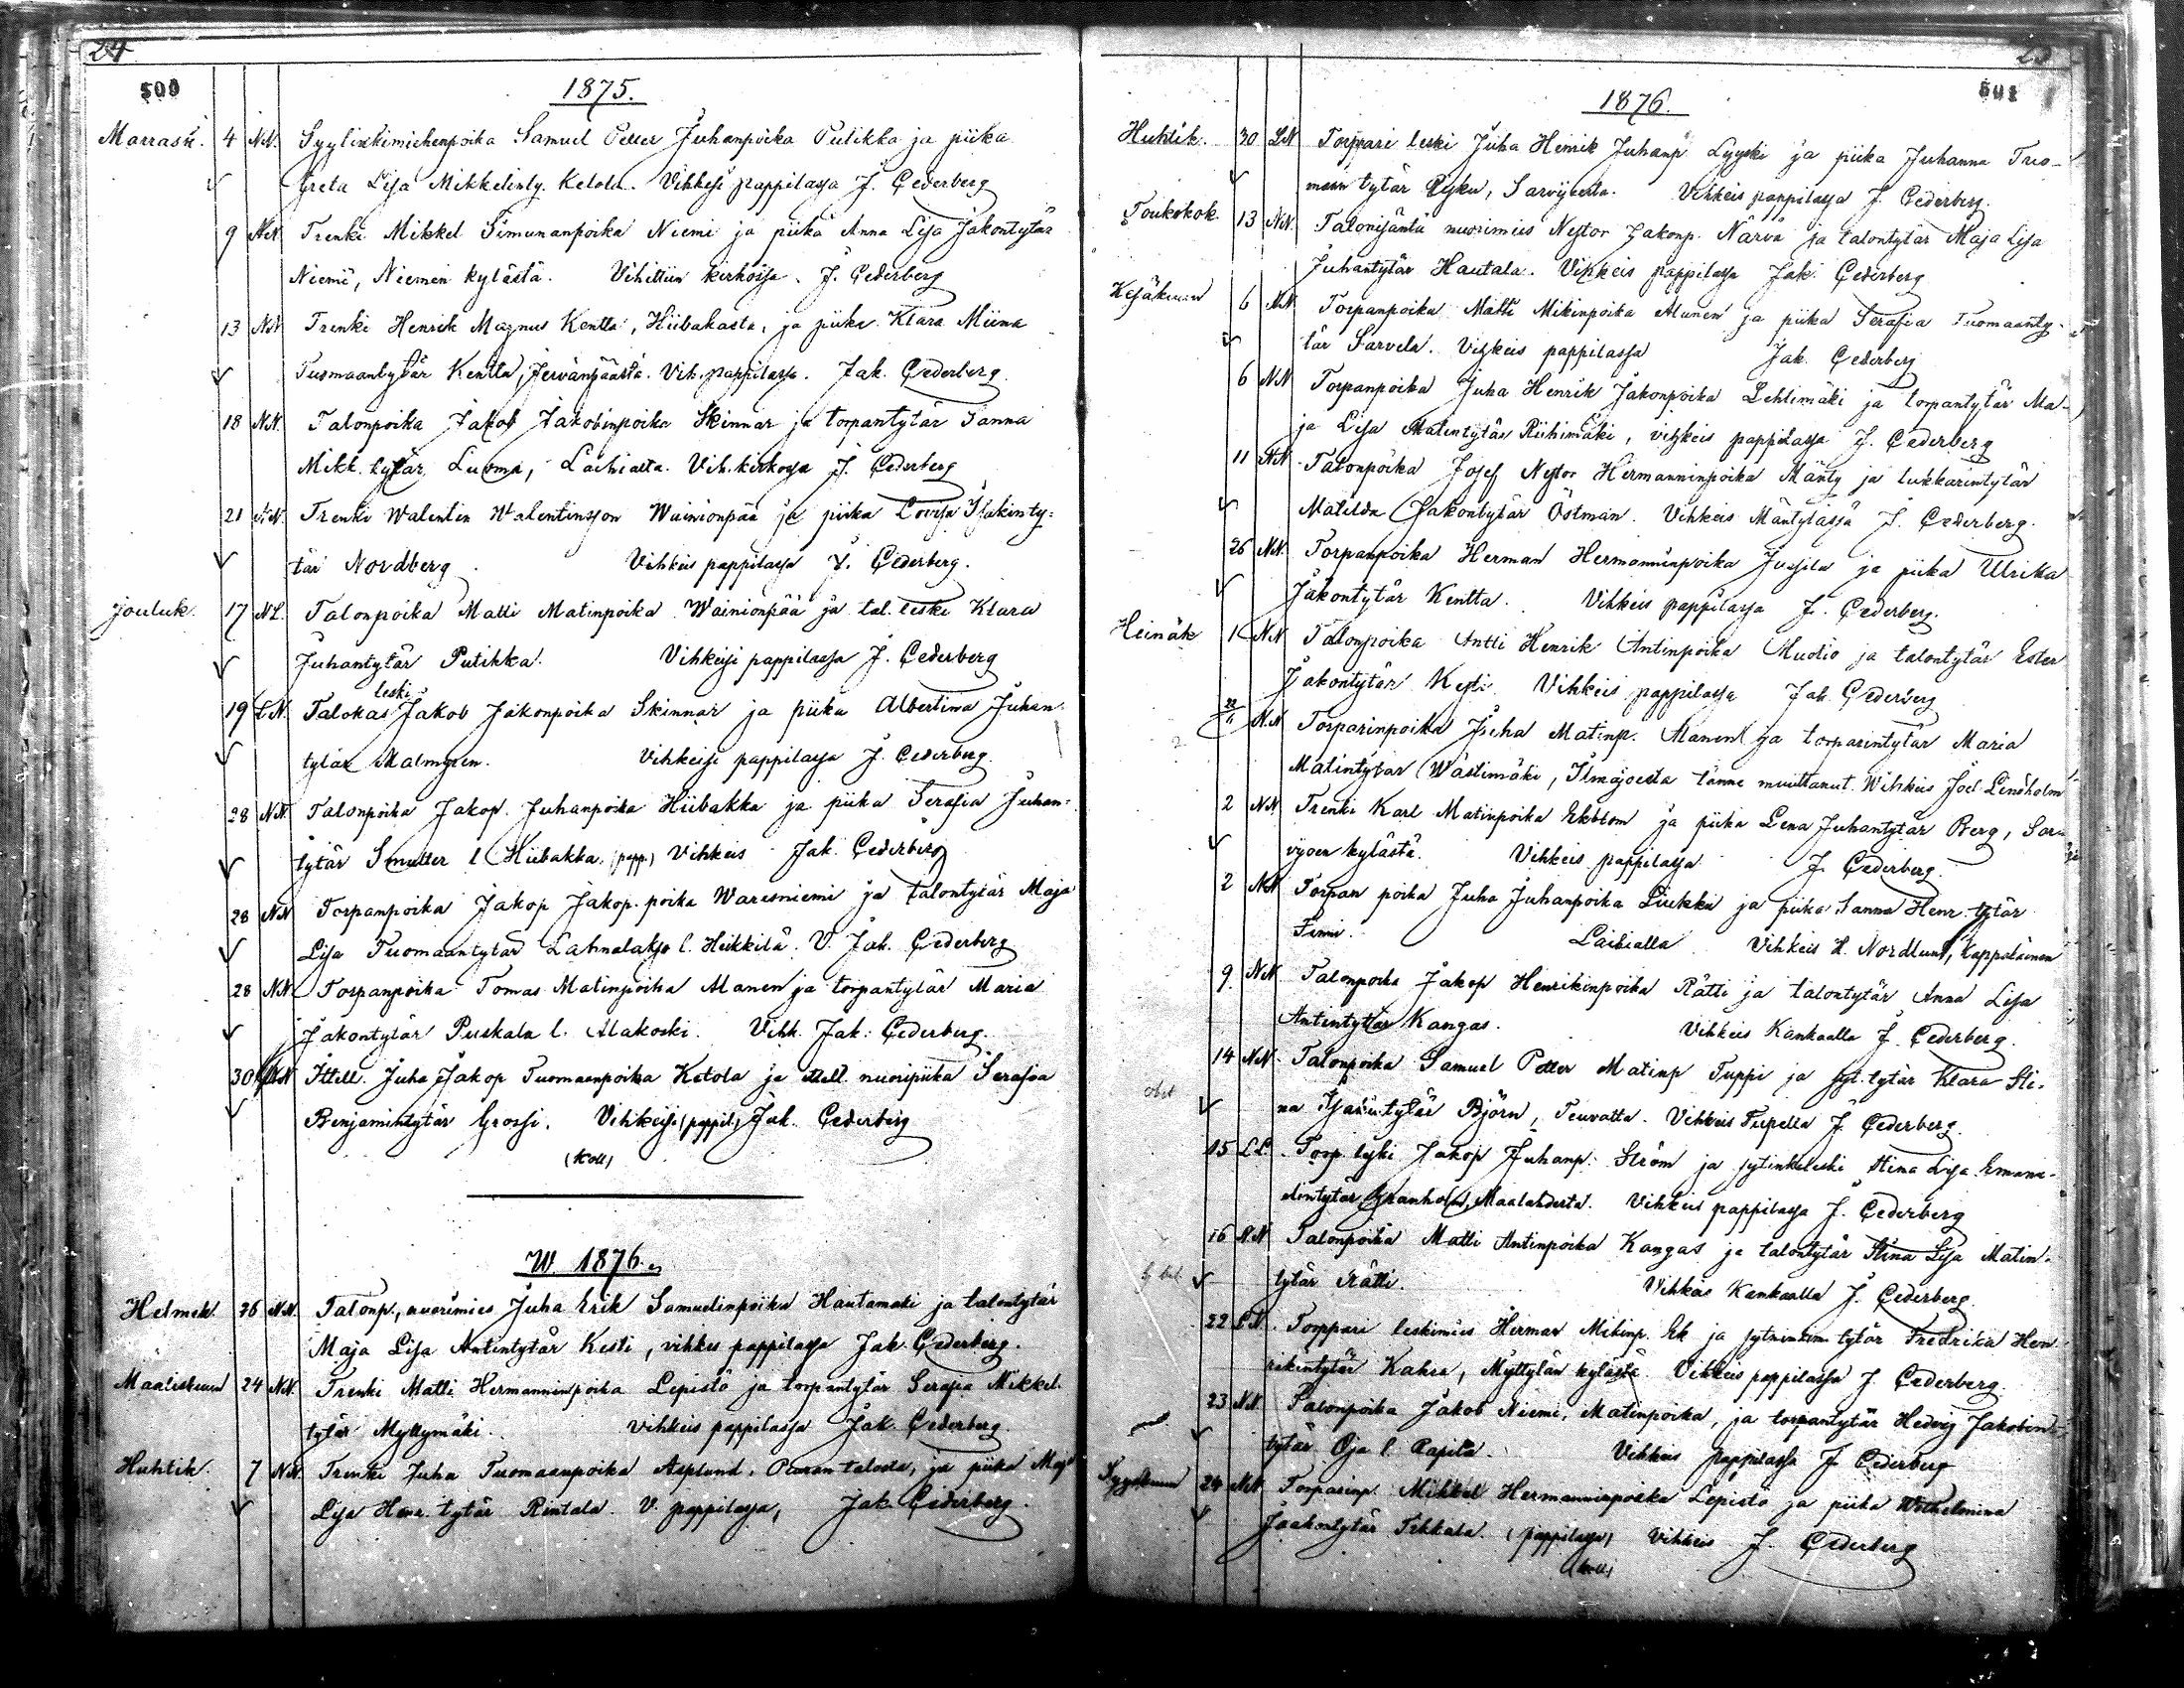 24
500
1875.
Marrask. 4 N.N. Syytinkimiehenpoika Samuel Petter Juhanpoika Putikka ja piika
Greta Lisa Mikkelinty. Ketola. Vihkesi pappilassa J. Cederberg
9 N.N. Trenki Mikkel Simunanpoika Niemi ja piika Anna Lisa Jakontytär
Niemi, Niemen kylästä. Vihittiin kirkossa. J. Cederberg
13 N.N. Trenki Henrik Magnus Kentta, Hiibakasta, ja piika Klara Miina
Tuomaantytär Kentta, Jervänpäästä. Vih. pappilassa. Jak. Cederberg
18 N.N. Talonpoika Jakob Jakobinpoika Skinnar ja torpantytär Sanna
Mikk. tytär Luoma, Laihialta. Vih. kirkossa J. Cederberg
21 N.N. Trenki Walentin Walentinsson Wainionpää ja piika Lovisa Isakinty-
tär Nordberg. Vihkeis pappilassa J. Cederberg.
jouluk. 17 N.L. Talonpoika Matti Matinpoika Wainionpää ja tal. leski Klara
Juhantytär Putikka. Vihkeisi pappilassa J. Cederberg
leski
19 L.N. Talokas Jakob Jakonpoika Skinnar ja piika Albertina Juhan-
tytär Malmgren. Vihkeisi pappilassa J. Cederberg.
28 N.N. Talonpoika Jakop Juhanpoika Hiibakka ja piika Serafia Juhan-
tytär Smulter l. Hiibakka. (papp.) Vihkeis Jak. Cederberg
28 N.N Torpanpoika Jakop Jakop. poika Waresniemi ja talontytär Maja
Lisa Tuomaantytär Lahnalakso l. Heikkilä. V. Jak. Cederberg
28 N.N Torpanpoika Tomas Matinpoika Alanen ja torpantytär Maria
Jakontytär Puskala l. Alakoski. Vihk. Jak. Cederberg.
30 N.N Ittell. Juha Jakop Tuomaanpoika Ketola ja ittell. nuoripiika Serafia
Benjamintytär Grossi. Vihkeisi (pappil.) Jak. Cederberg
(Koll)
W. 1876.
Helmik. 26 N.N. Talonp., nuorimies Juha Erik Samuelinpoika Hautamäki ja talontytär
Maja Lisa Antintytär Kesti, vihkes pappilassa Jak Cederberg.
Maaliskuun 24 N.N. Trenki Matti Hermanninpoika Lepistö ja torpantytär Serafia Mikkel.
tytär Myllymäki. Vihkeis pappilassa Jak. Cederberg
Huhtik. 7 N.N. Trenki Juha Tuomaanpoika Asplund, talosta, ja piika Maja
Lisa Henr. tytär Rintala. V. pappilassa, Jak Cederberg.
25
501
1876.
Huhtik. 30 L.N Torppari leski Juha Henrik Juhanp. Lyyski ja piika Juhanna Tuo-
maan tytär, Sarvijoelta. Vihkeis pappilassa J. Cederberg.
Toukokok. 13 N.N. Talonisäntä nuorimies Nestor Jakonp. Närvä ja talontytär Maja Lisa
Juhantytär Hautala. Vihkeis pappilassa Jak. Cederberg
Kesäkuun 6 N.N. Torpanpoika Matti Mikinpoika Alunen ja piika Serafia Tuomaanty-
tär Sarvela. Vihkeis pappilassa Jak. Cederberg
6 N.N Torpanpoika Juha Henrik Jakonpoika Lehtimäki ja torpantytär Ma-
ja Lisa Matintytär Riihimäki, vihkeis pappilassa J. Cederberg
11 N.N. Talonpoika Josef Nestor Hermanninpoika Mänty ja lukkarintytär
Matilda Jakontytär Östman. Vihkeis Mäntylässä J. Cederberg.
26 N.N. Torpanpoika Herman Hermanninpoika Jussila ja piika Ulrika
Jakontytär Kentta. Vihkeis pappilassa J. Cederberg.
Heinäk 1 N.N Talonpoika Antti Henrik Antinpoika Muotio ja talontytär Ester
Jakontytär Kesti Vihkeis pappilassa Jak. Cederberg
N.N Torparinpoika Juha Matinp. Alanen ja torparintytär Maria
Matintytär Wästimäki, Ilmajoelta tänne muuttanut. Wihkeis Joel Lindholm
2 N.N Trenki Karl Matinpoika Ekblom ja piika Lena Juhantytär Berg, Sar-
vijoen kylästä. Vihkeis pappilassa J. Cederberg.
2 N.N Torpan poika Juha Juhanpoika Liukku ja piika Sanna Henr. tytär
Finni. Laihialla Vihkeis H. Nordlund, Kappalainen
9 N.N Talonpoika Jakop Henrikinpoika Rätti ja talontytär Anna Lisa
Antintytär Kangas. Vihkeis Kankaalla J. Cederberg.
14 N.N. Talonpoika Samuel Petter Matinp Tuppi ja syt. tytär Klara Sti-
na Isakintytär Björn, Teuvalta. Vihkeis Tupella J. Cederberg.
15 L.L. Torp. leski Jakop Juhanp. Ström ja sytinkileski Stina Lisa Emanu-
elintytär Granholm, Maalahdesta. Vihkeis pappilassa J. Cederberg
16 N.N Talonpoika Matti Antinpoika Kangas ja talontytär Stina Lisa Matin-
tytär Rätti. Vihkeis Kankaalla J. Cederberg.
22 L.N. Torppari leskimies Herman Mikinp. Ek ja tytär Fredrika Hen-
rikintytär Kahra, Myttylän kylästä Vihkeis pappilassa J. Cederberg.
23 N.N. Talonpoika Jakob Niemi, Matinpoika, ja torpantytär Hedvig Jakobin-
tytär Oja l. Rapila. Vihkeis pappilassa J Cederberg
Syyskuun 24 N.N Torparinp. Mikkel Hermanninpoika Lepistö ja piika Wilhelmina
Jaakontytär Tikkala. (pappilassa) Vihkeis J. Cederberg
(koll)